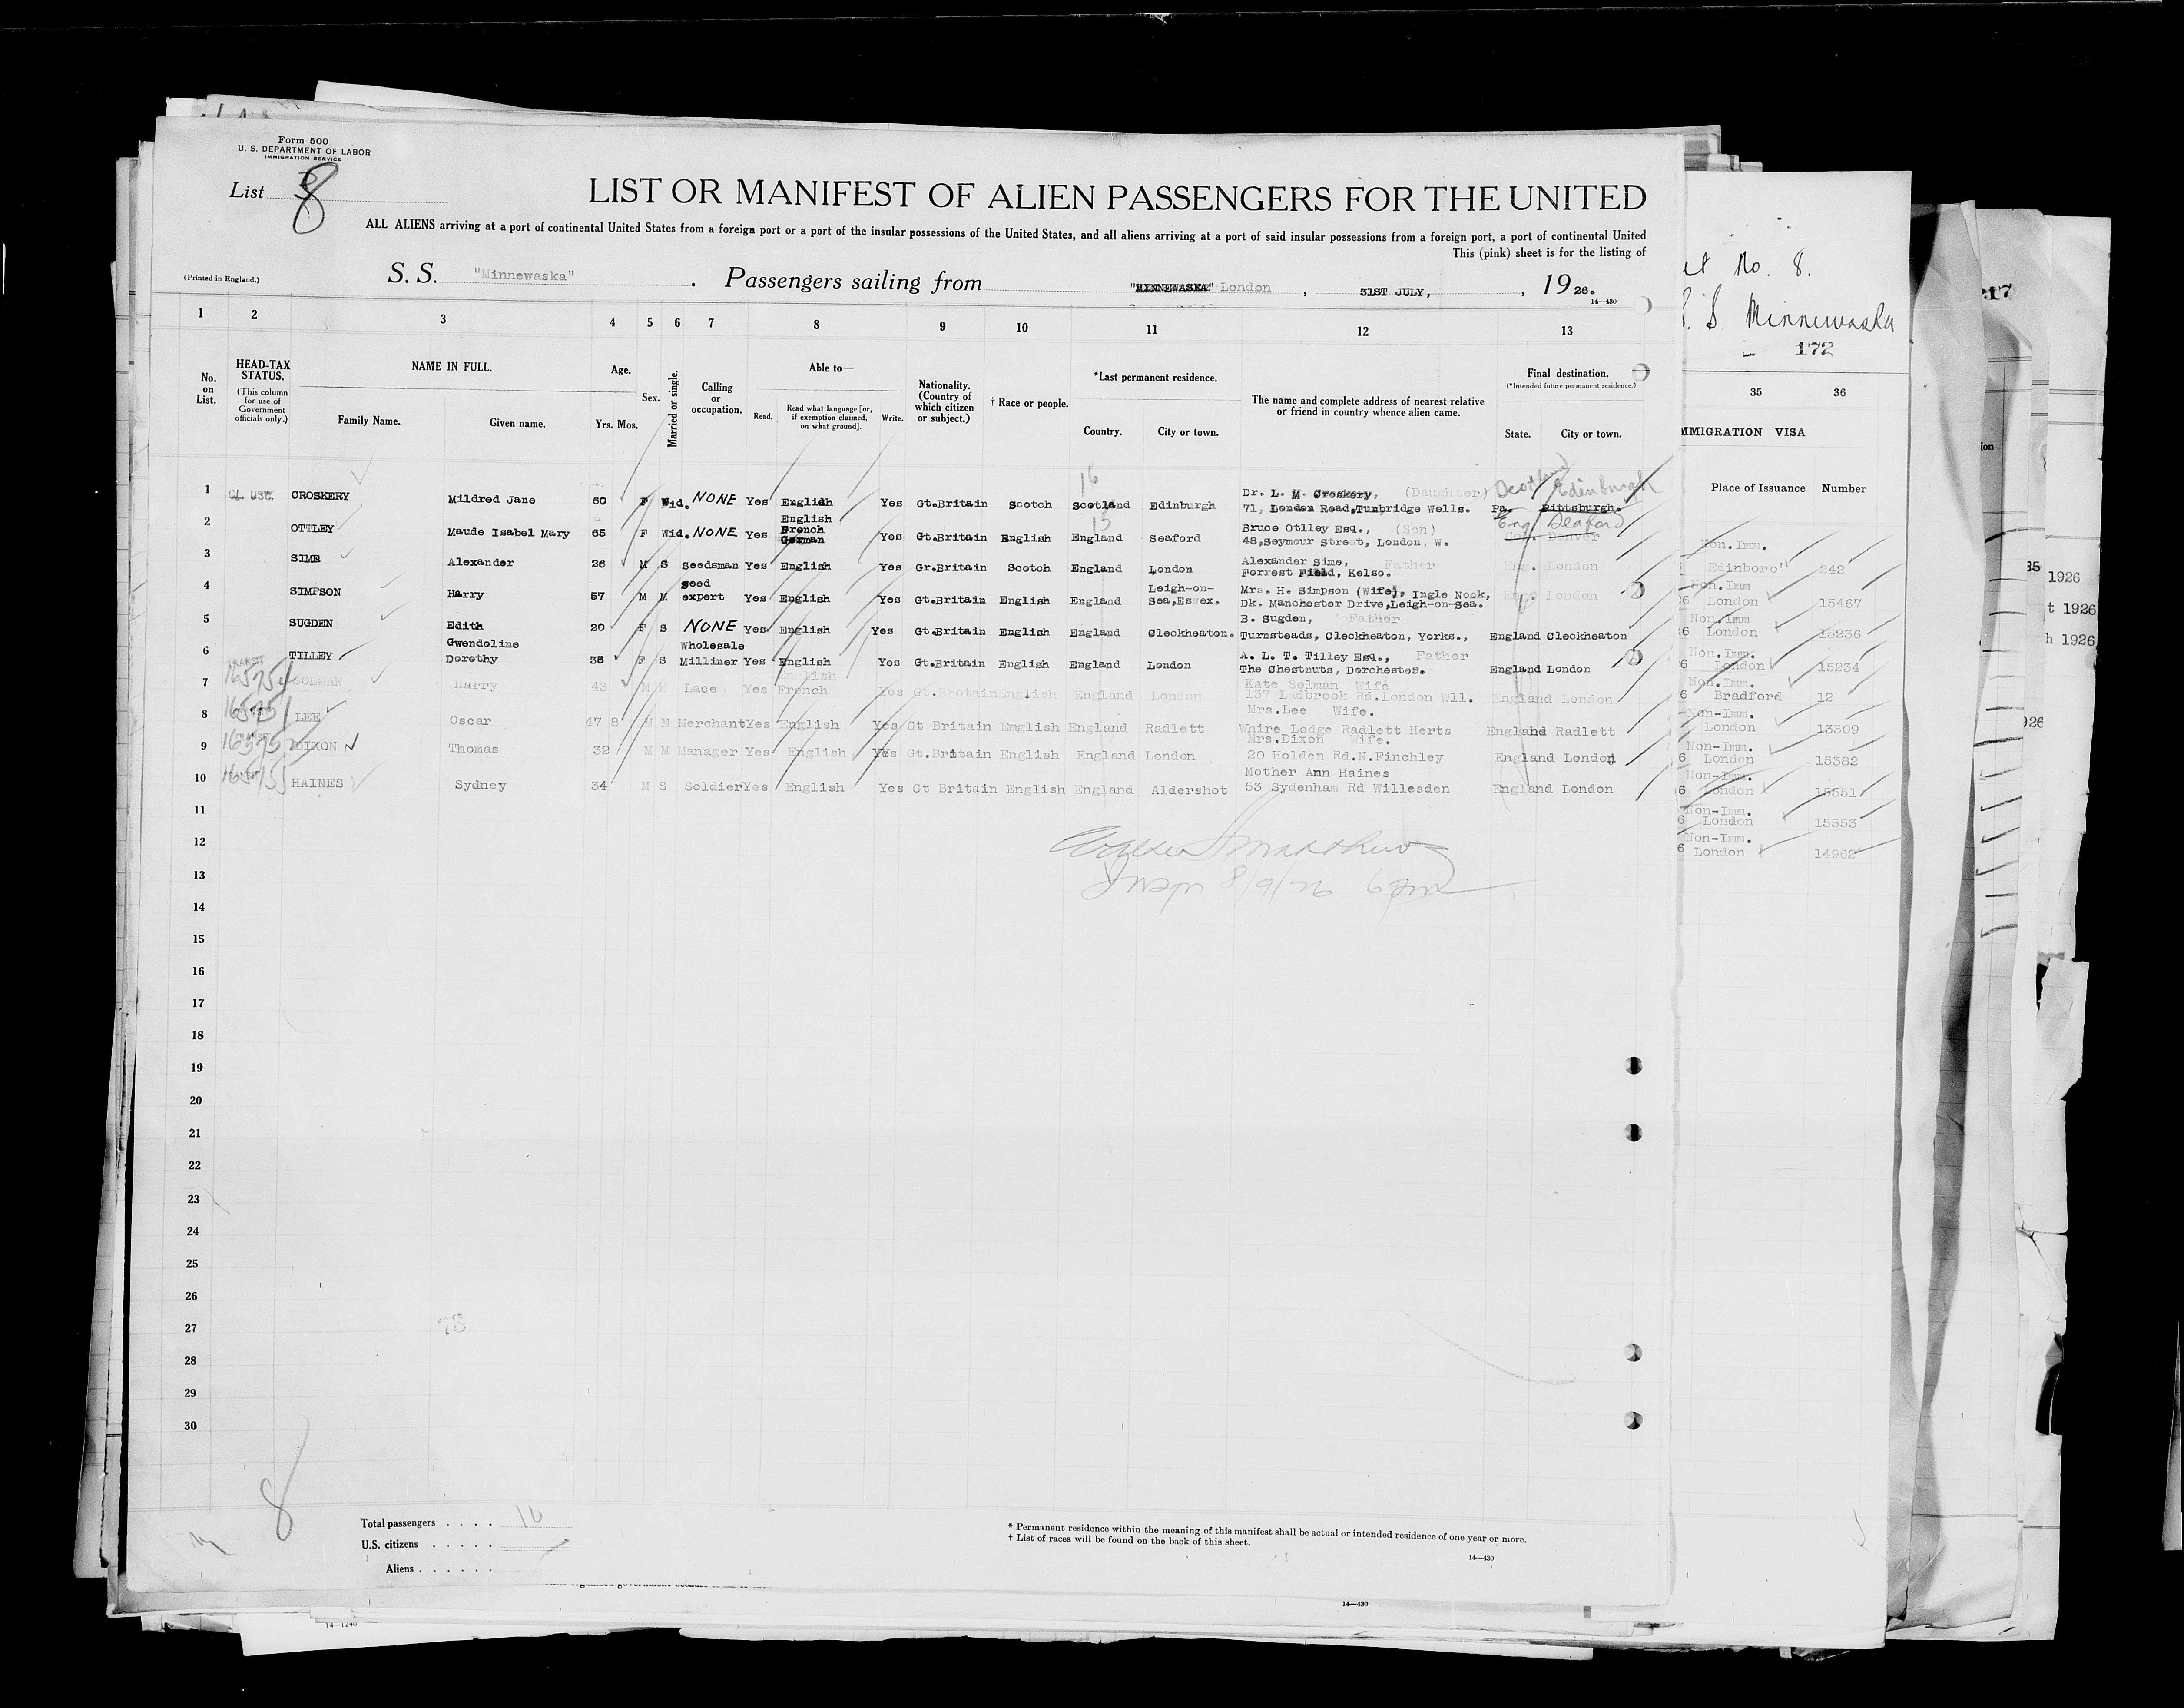 Form 500
U. S. DEPARTMENT OF LABOR
IMMIGRATION SERVICE
List 8
LIST OR MANIFEST OF ALIEN PASSENGERS FOR THE UNITED
ALL ALIENS arriving at a port of continental United States from a foreign port or a port of the insular possessions of the United States, and all aliens arriving at a port of said insular possessions from a foreign port, a port of continental United
This (pink) sheet is for the listing of
(Printed in England.)
S. S. "Minnewaska" . Passengers sailing from "MINNEWASKA" London , 31ST JULY, , 1926.
14—430
1 2 3 4 5 6 7 8 9 10 11 12 13
No. on List.
HEAD-TAX STATUS.
(This column for use of Government officials only.)
NAME IN FULL.
Family Name. Given name.
Age.
Yrs. Mos.
Sex.
Married or single.
Calling or occupation.
Able to—
Read. Read what language [or, if exemption claimed, on what ground]. Write.
Nationality. (Country of which citizen or subject.)
† Race or people.
*Last permanent residence.
Country. City or town.
The name and complete address of nearest relative or friend in country whence alien came.
Final destination.
(*Intended future permanent residence.)
State. City or town.
16
Scotland Edinburgh
1 CROSKERY Mildred Jane 60 F Wid. NONE Yes English Yes Gt.Britain Scotch Scotland Edinburgh Dr. L. M. Croskery, (Daughter) 71, London Road,Tunbridge Wells. Pa. Pittsburgh.
15
Eng Seaford
2 OTTLEY Maude Isabel Mary 65 F Wid. NONE Yes English French German Yes Gt.Britain English England Seaford Bruce Otlley Esq., (Son) 48,Seymour Street, London, W. Denver
3 SIME Alexander 26 M S Seedsman Yes English Yes Gr.Britain Scotch England London Alexander Sime, Father Forrest Field, Kelso. Eng. London
4 SIMPSON Harry 57 M M seed expert Yes English Yes Gt.Britain English England Leigh-on-Sea,Essex. Mrs. H. Simpson (Wife), Ingle Nook, Dk. Manchester Drive,Leigh-on-Sea. London
5 SUGDEN Edith 20 F S NONE Yes English Yes Gt.Britain English England Cleckheaton. B. Sugden, Father Turnsteads, Cleckheaton, Yorks., England Cleckheaton
6 TILLEY Gwendoline Dorothy 35 F S Wholesale Milliner Yes English Yes Gt.Britain English England London A. L. T. Tilley Esq., Father The Chestnuts, Dorchester. England London
7 SOLMAN Harry 43 M M Lace Yes English French Yes Gt.Brotain English England London Kate Solman Wife 137 Ladbrook Rd.London W11. England London
8 LEE Oscar 47 8 M M Merchant Yes English Yes Gt Britain English England Radlett Mrs.Lee Wife. Whire Lodge Radlett Herts England Radlett
9 DIXON Thomas 32 M M Manager Yes English Yes Gt.Britain English England London Mrs.Dixon Wife. 20 Holden Rd.N.Finchley England London
10 HAINES Sydney 34 M S Soldier Yes English Yes Gt Britain English England Aldershot Mother Ann Haines 53 Sydenham Rd Willesden England London
11
12
13
8/9/26 6 pm
14
15
16
17
18
19
20
21
22
23
24
25
26
27
78
28
29
30
8
Total passengers . . . . 10
U.S. citizens . . . . . .
Aliens . . . . . .
* Permanent residence within the meaning of this manifest shall be actual or intended residence of one year or more.
† List of races will be found on the back of this sheet.
14—430
14—430
14—1240
No. 8.
S. S. Minnewaska
172
35 36
IMMIGRATION VISA
Place of Issuance Number
Non.Imm.
Edinboro" 242
Non.Imm
London 15467
Non.Imm
London 15236
Non.Imm.
London 15234
Non.Imm.
Bradford 12
Non-Imm.
London 13309
Non-Imm.
London 15382
Non-Imm.
London 15551
Non-Imm.
London 15553
Non-Imm.
London 14962
217
1926
t 1926
h 1926
926